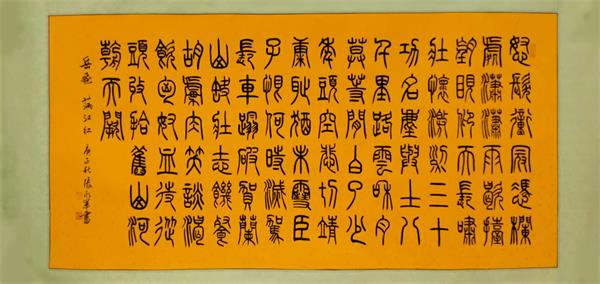 怒髮衝冠憑欄
處瀟瀟雨歇擡
望眼仰天長嘯
壯懷激烈三十
功名塵與土八
千里路雲和月
莫等閒白了少
年頭空悲切靖
康恥猶未雪臣
子恨何時滅駕
長車踏破賀蘭
山缺壯志饑餐
胡虜肉笑談渴
飲匈奴血待從
頭收拾舊山河
朝天闕
岳飛 滿江紅 庚子秋 書